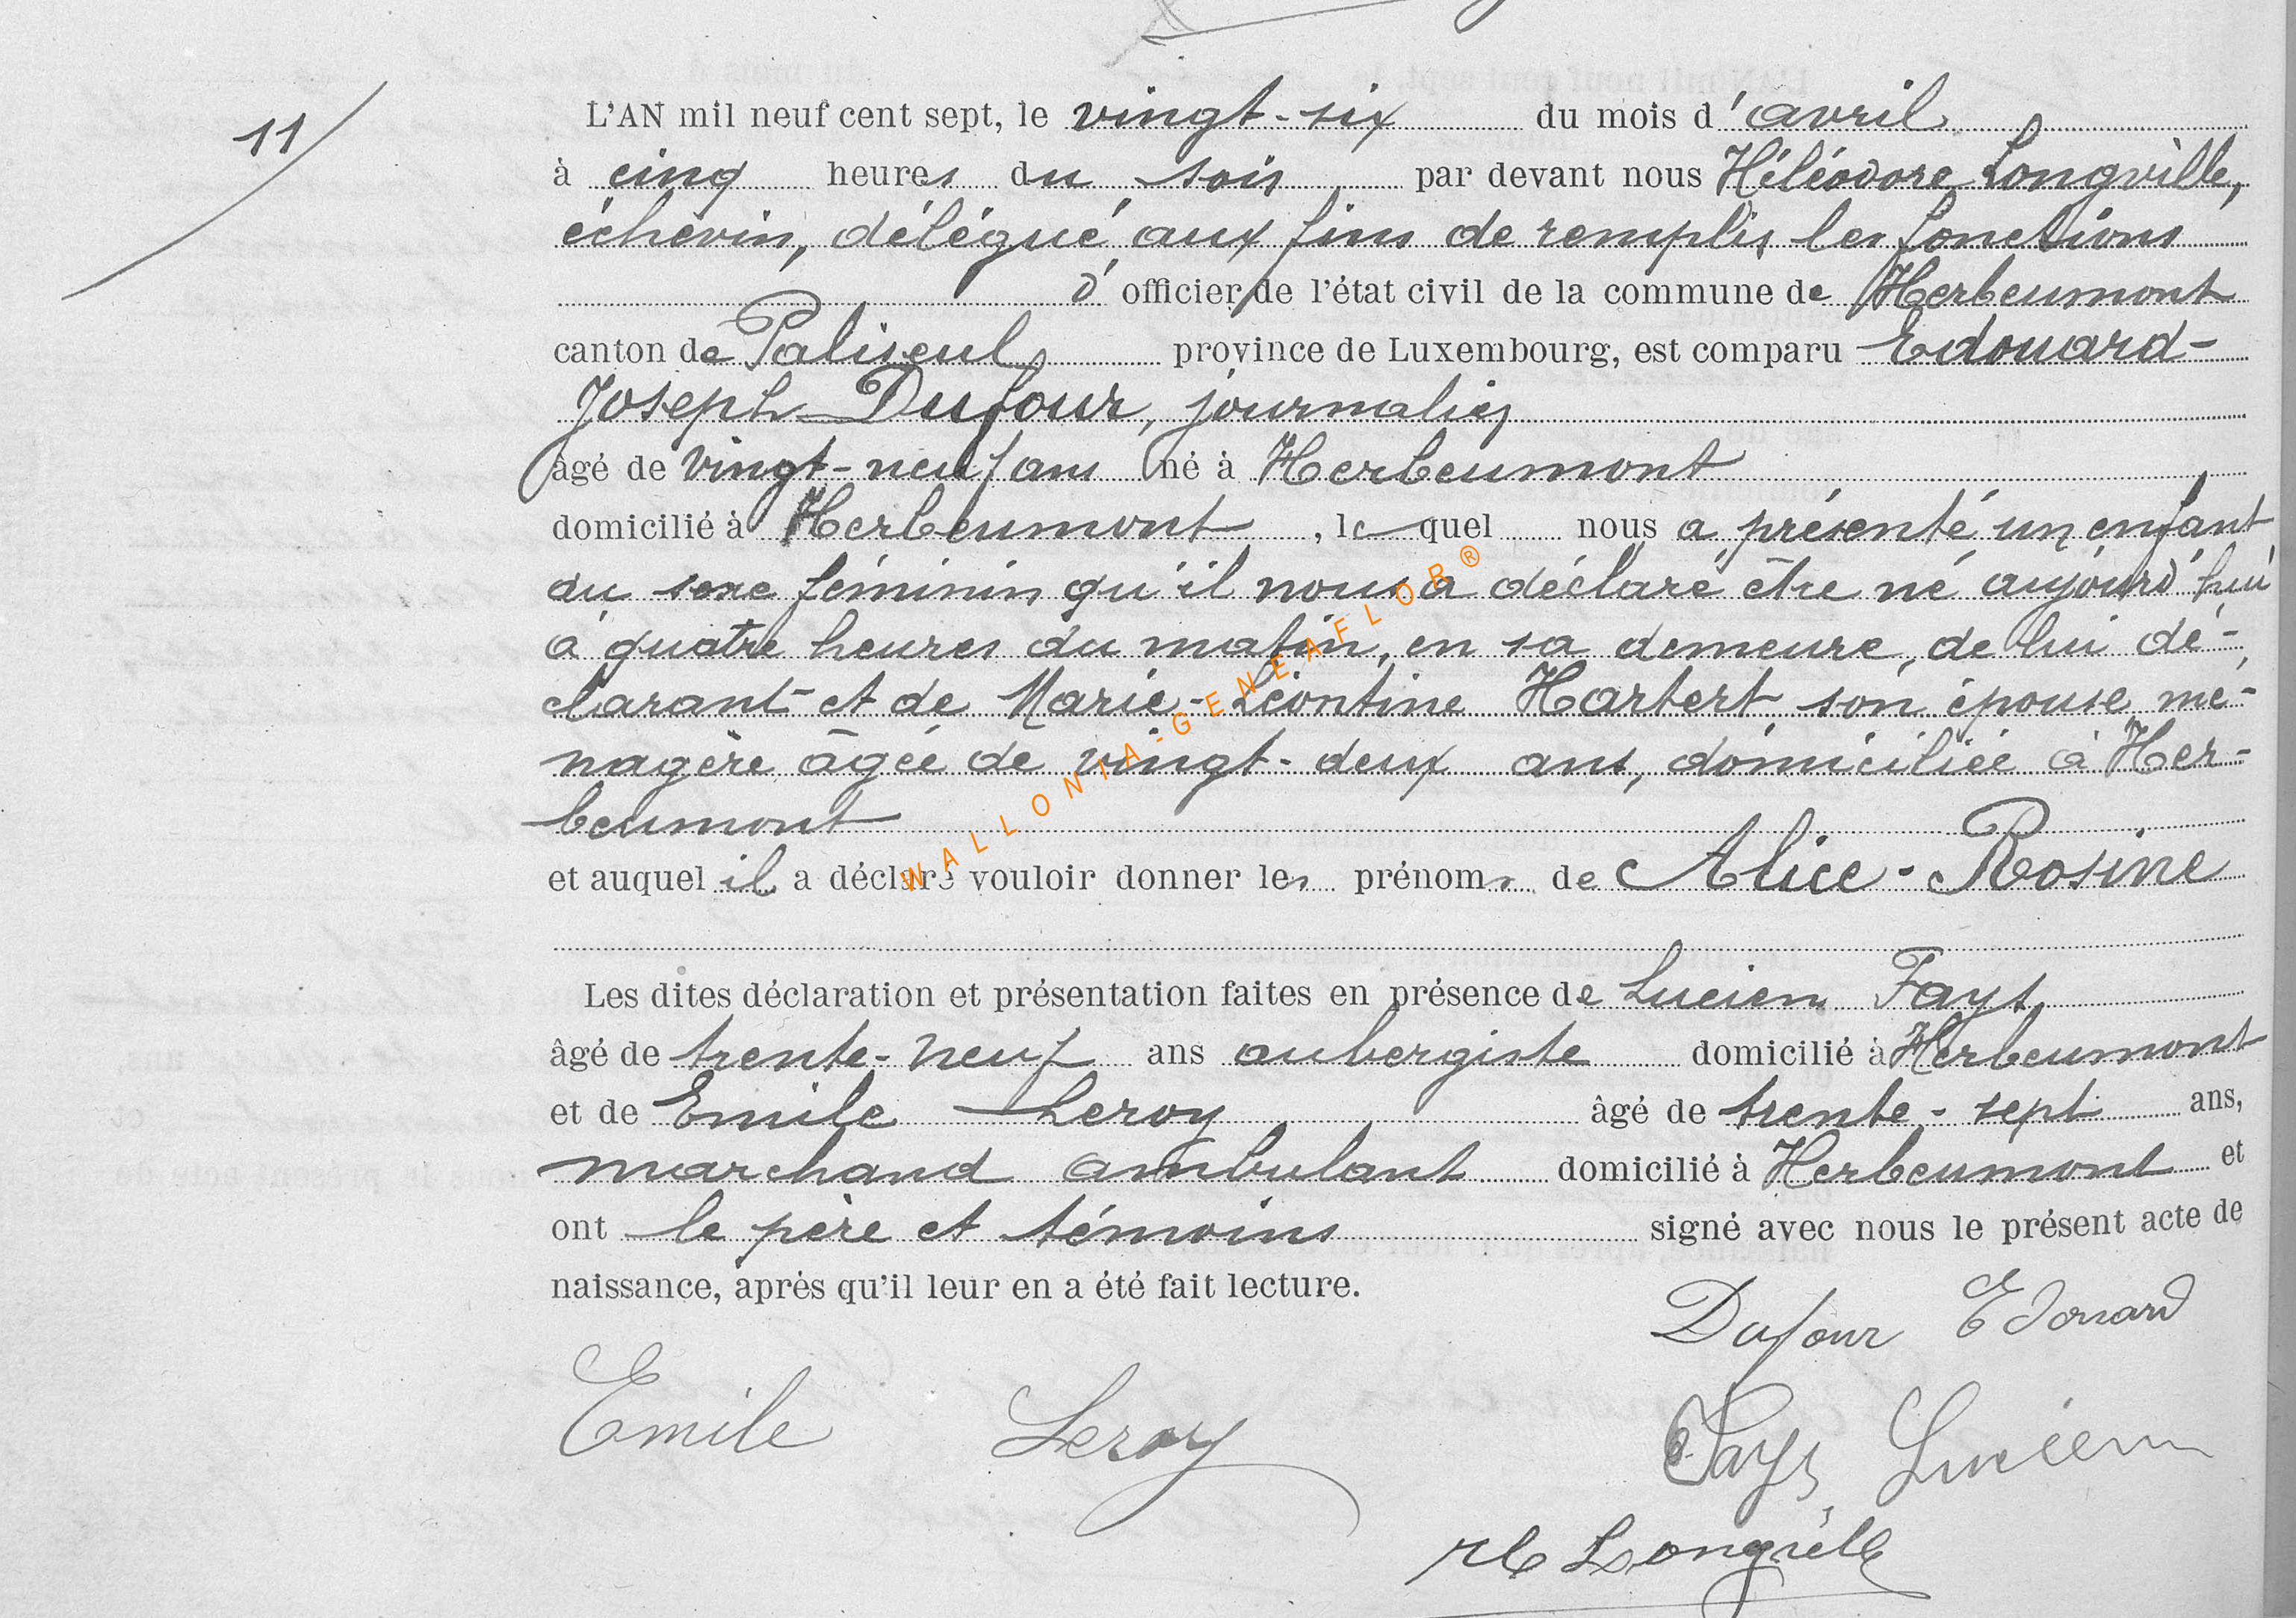 11
L'AN mil neuf cent sept, le vingt-six du mois d'avril
à cinq heures du soir par devant nous Héléodore Longville,
échevin, délégué aux fins de remplir les fonctions
d'officier de l'état civil de la commune de Herbeumont
canton de Paliseul, province de Luxembourg, est comparu Edouard-
Joseph Dufour, journalier
âgé de vingt-neuf ans né à Herbeumont
domicilié à Herbeumont, lequel nous a présenté un enfant
du sexe féminin qu'il nous a déclaré être né aujourd'hui
à quatre heures du matin, en sa demeure, de lui dé-
clarant et de Marie-Léontine Hartert son épouse mé-
nagère âgée de vingt-deux ans, domiciliée à Her-
beumont
et auquel il a déclaré vouloir donner les prénoms de Alice-Rosine
Les dites déclaration et présentation faites en présence de Lucien Fays,
âgé de trente-neuf ans aubergiste domicilié à Herbeumont
et de Emile Leroy âgé de trente-sept ans,
marchand ambulant domicilié à Herbeumont et
ont le père et témoins signé avec nous le présent acte de
naissance, après qu'il leur en a été fait lecture.
Dufour Edouard
Emile Leroy
Fays Lucien
Longville
WALLONIA-GENEAFLOR®